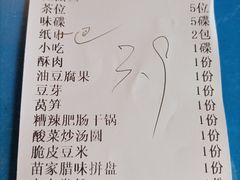 茶位 5位
味碟 5碟
纸巾 2包
小吃 1碟
酥肉 1份
油豆腐果 1份
豆芽 1份
莴笋 1份
糟辣肥肠干锅 1份
酸菜炒汤圆 1份
脆皮豆米 1份
苗家腊味拼盘 1份